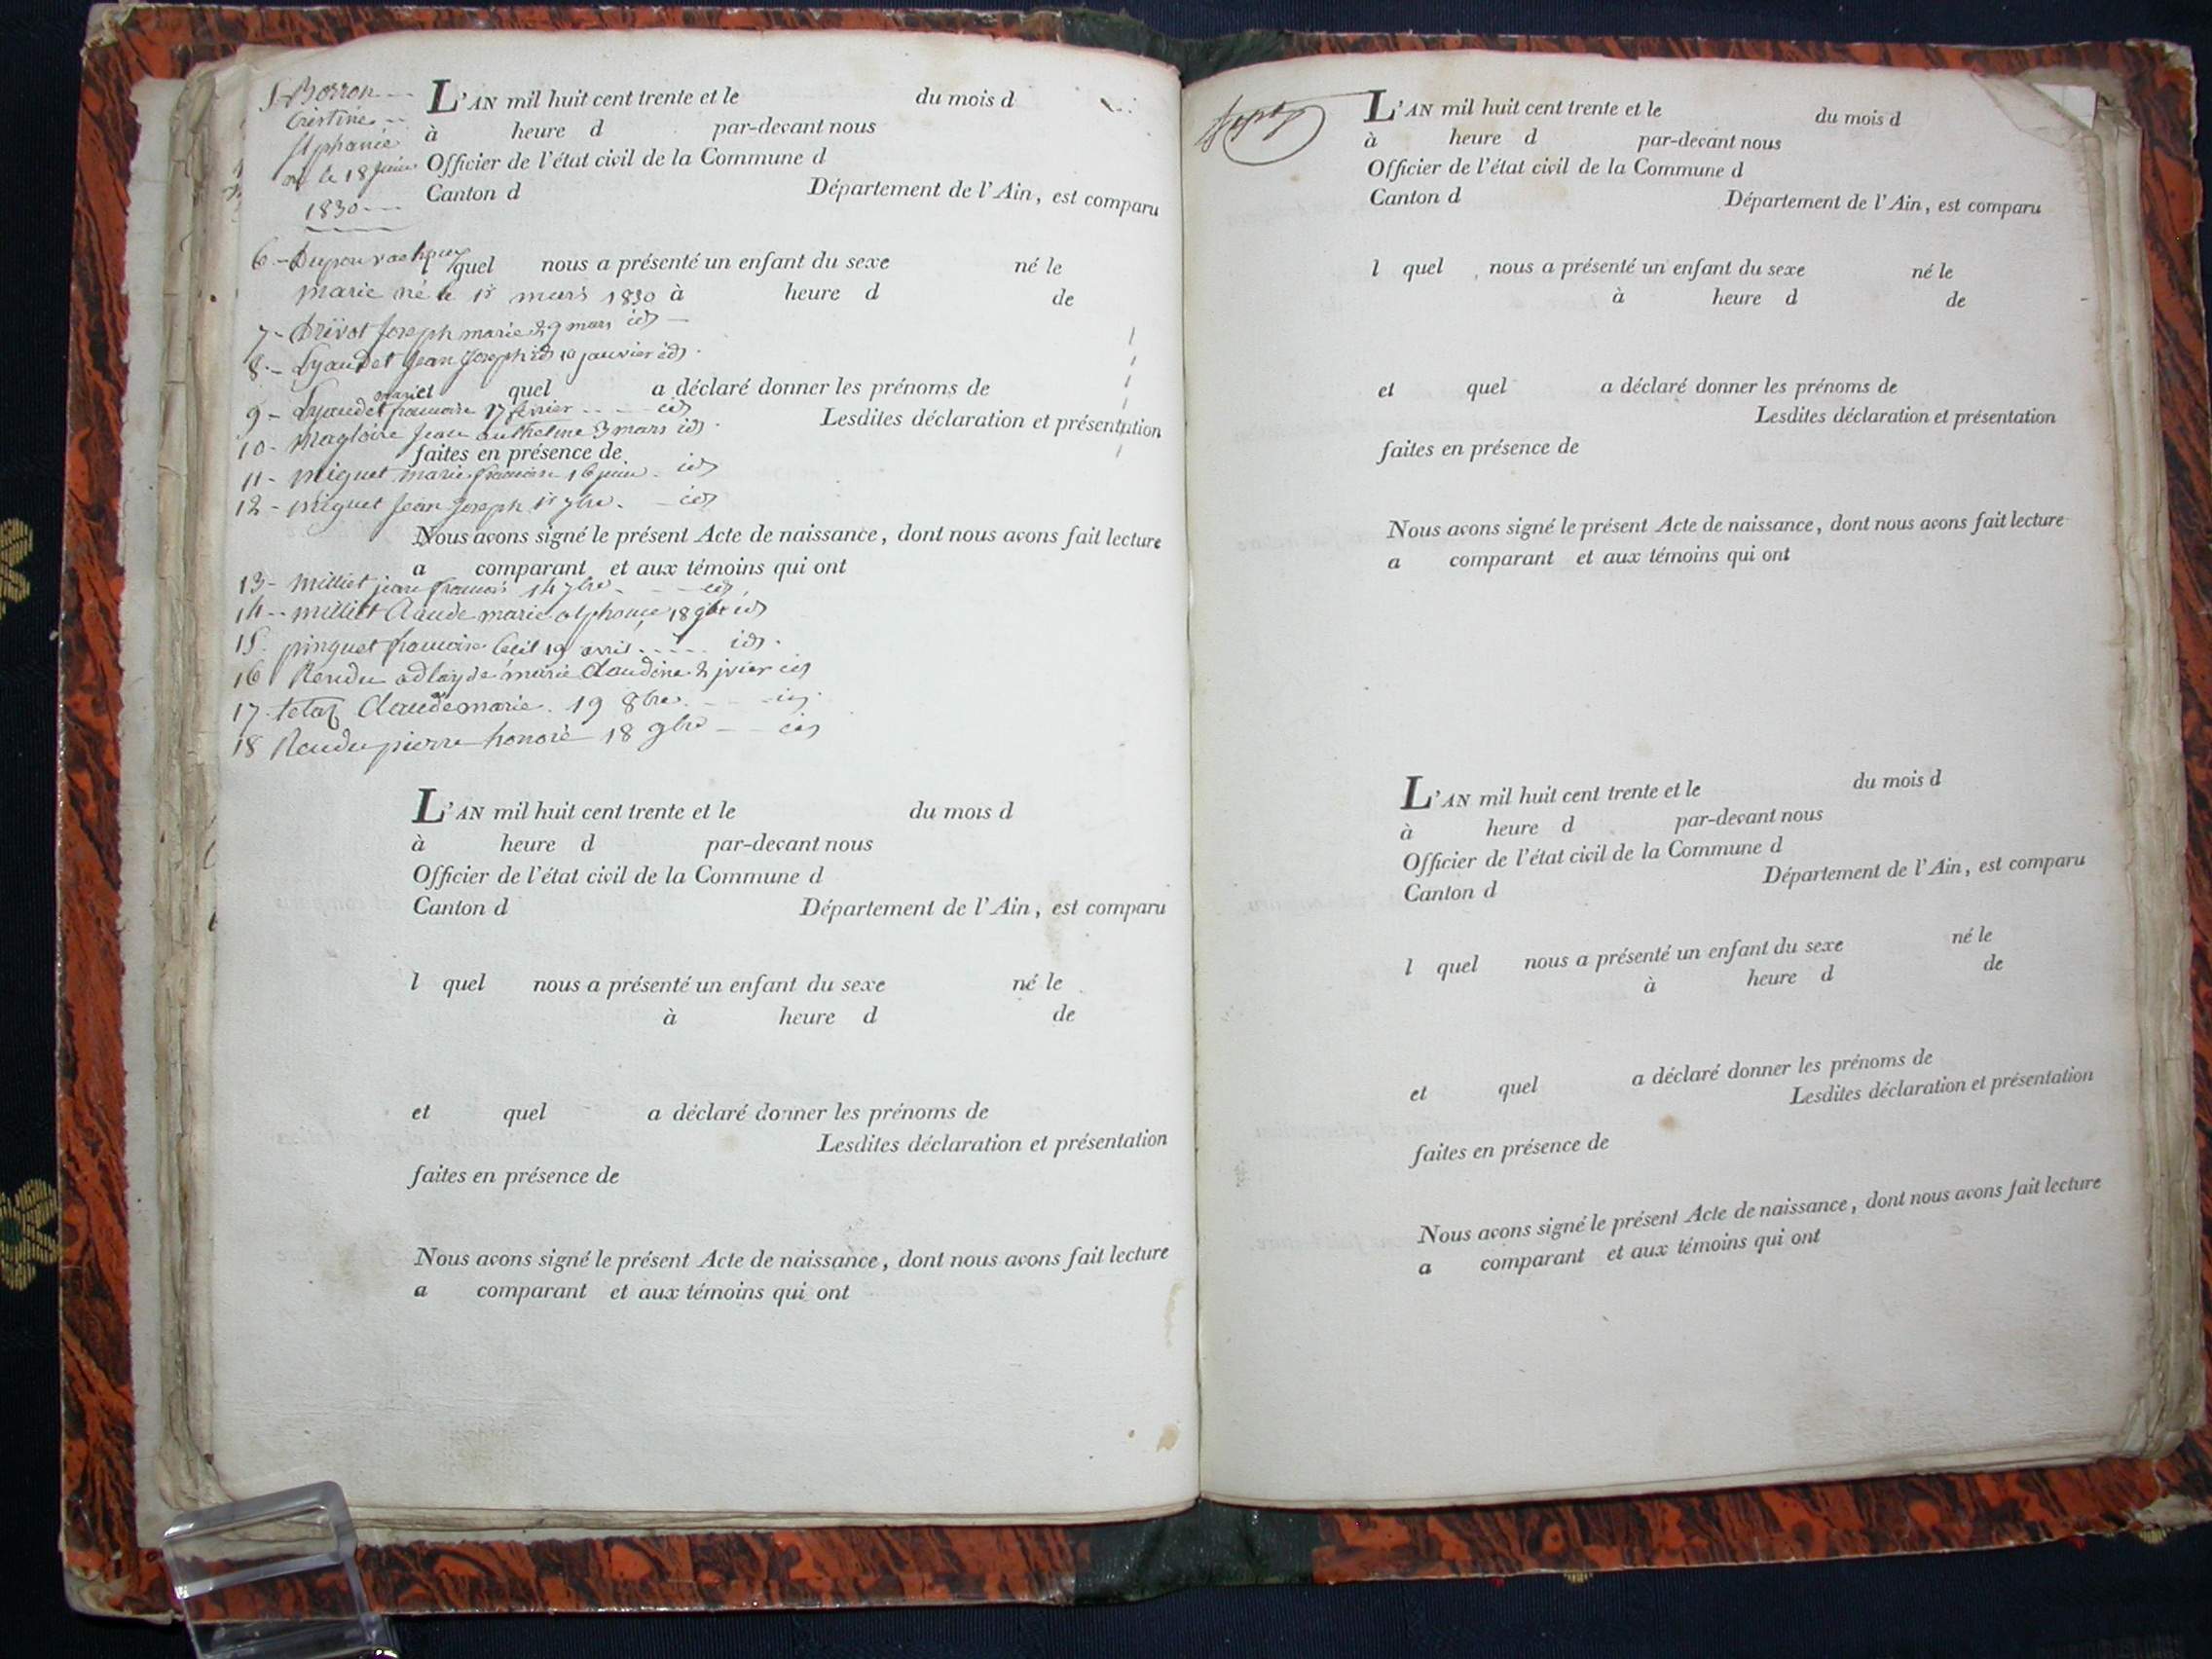 5- Borron
Cristine
stphanie
né le 18 juin
1830
L'AN mil huit cent trente et le du mois d
à heure d par-devant nous
Officier de l'état civil de la Commune d
Canton d Département de l'Ain, est comparu
6.-
l quel nous a présenté un enfant du sexe né le
marie né le 1r mars 1830 à heure d de
7- Drivot Joseph marie 29 mars id
8.- Lyaudet Jean Joseph 10 janvier id
quel a déclaré donner les prénoms de
9- Lyaudet mariet francoise 17 février id
Lesdites déclaration et présentation
10- Magloire Jean anthelme 3 mars id
faites en présence de
11- Miguet marie francoise 16 juin id
12- Miguet Jean Joseph 1r 7bre id
Nous avons signé le présent Acte de naissance, dont nous avons fait lecture
a comparant et aux témoins qui ont
13- Milliet jean francois 14 7bre id
14- milliet Claude marie alphonse 18 9bre id
15. pinguet francoise Cecil 19 avril id
16 Rendu adlayde marie Claudine 2 jvier id
17. tetaz Claude marie. 19 8bre id
18 Rendu pierre honoré 18 9bre id
L'AN mil huit cent trente et le du mois d
à heure d par-devant nous
Officier de l'état civil de la Commune d
Canton d Département de l'Ain, est comparu
l quel nous a présenté un enfant du sexe né le
à heure d de
et quel a déclaré donner les prénoms de
Lesdites déclaration et présentation
faites en présence de
Nous avons signé le présent Acte de naissance, dont nous avons fait lecture
a comparant et aux témoins qui ont
L'AN mil huit cent trente et le du mois d
à heure d par-devant nous
Officier de l'état civil de la Commune d
Canton d Département de l'Ain, est comparu
l quel nous a présenté un enfant du sexe né le
à heure d de
et quel a déclaré donner les prénoms de
Lesdites déclaration et présentation
faites en présence de
Nous avons signé le présent Acte de naissance, dont nous avons fait lecture
a comparant et aux témoins qui ont
L'AN mil huit cent trente et le du mois d
à heure d par-devant nous
Officier de l'état civil de la Commune d
Canton d Département de l'Ain, est comparu
l quel nous a présenté un enfant du sexe né le
à heure d de
et quel a déclaré donner les prénoms de
Lesdites déclaration et présentation
faites en présence de
Nous avons signé le présent Acte de naissance, dont nous avons fait lecture
a comparant et aux témoins qui ont